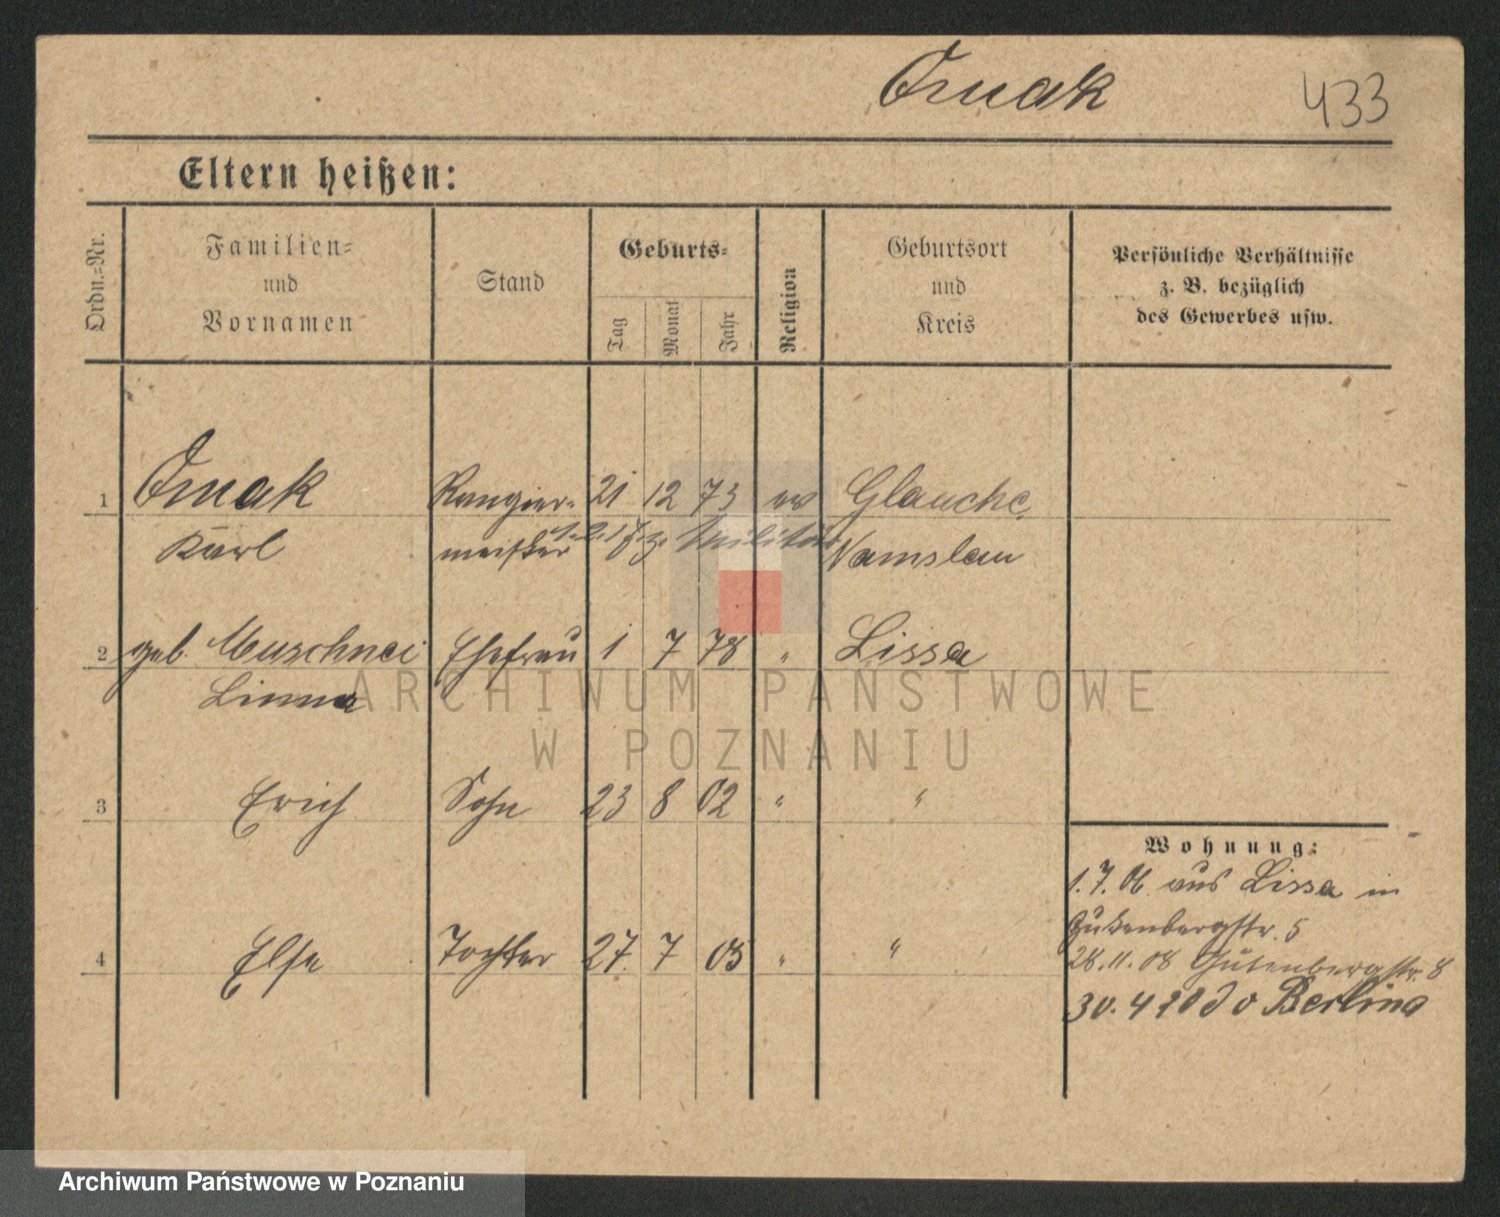 Omak 433
Eltern heißen:
Ordn.-Nr.
Familien- und Vornamen
Stand
Geburts-
Tag
Monat
Jahr
Religion
Geburtsort und Kreis
Persönliche Verhältnisse
z. B. bezüglich
des Gewerbes usw.
1 Omak Rangier- 21 12 73 ev Glauche
Karl meister Militär Namslau
2 geb. Ehefrau 1 7 78 " Lissa
3 Erich Sohn 23 8 02 " "
Wohnung:
1.7.06 aus Lissa in
Gutenbergstr. 5
4 Else Tochter 27 7 05 " "
28.11.08 Gutenbergstr. 8
30. 4 20
ARCHIWUM PAŃSTWOWE
W POZNANIU
Archiwum Państwowe w Poznaniu